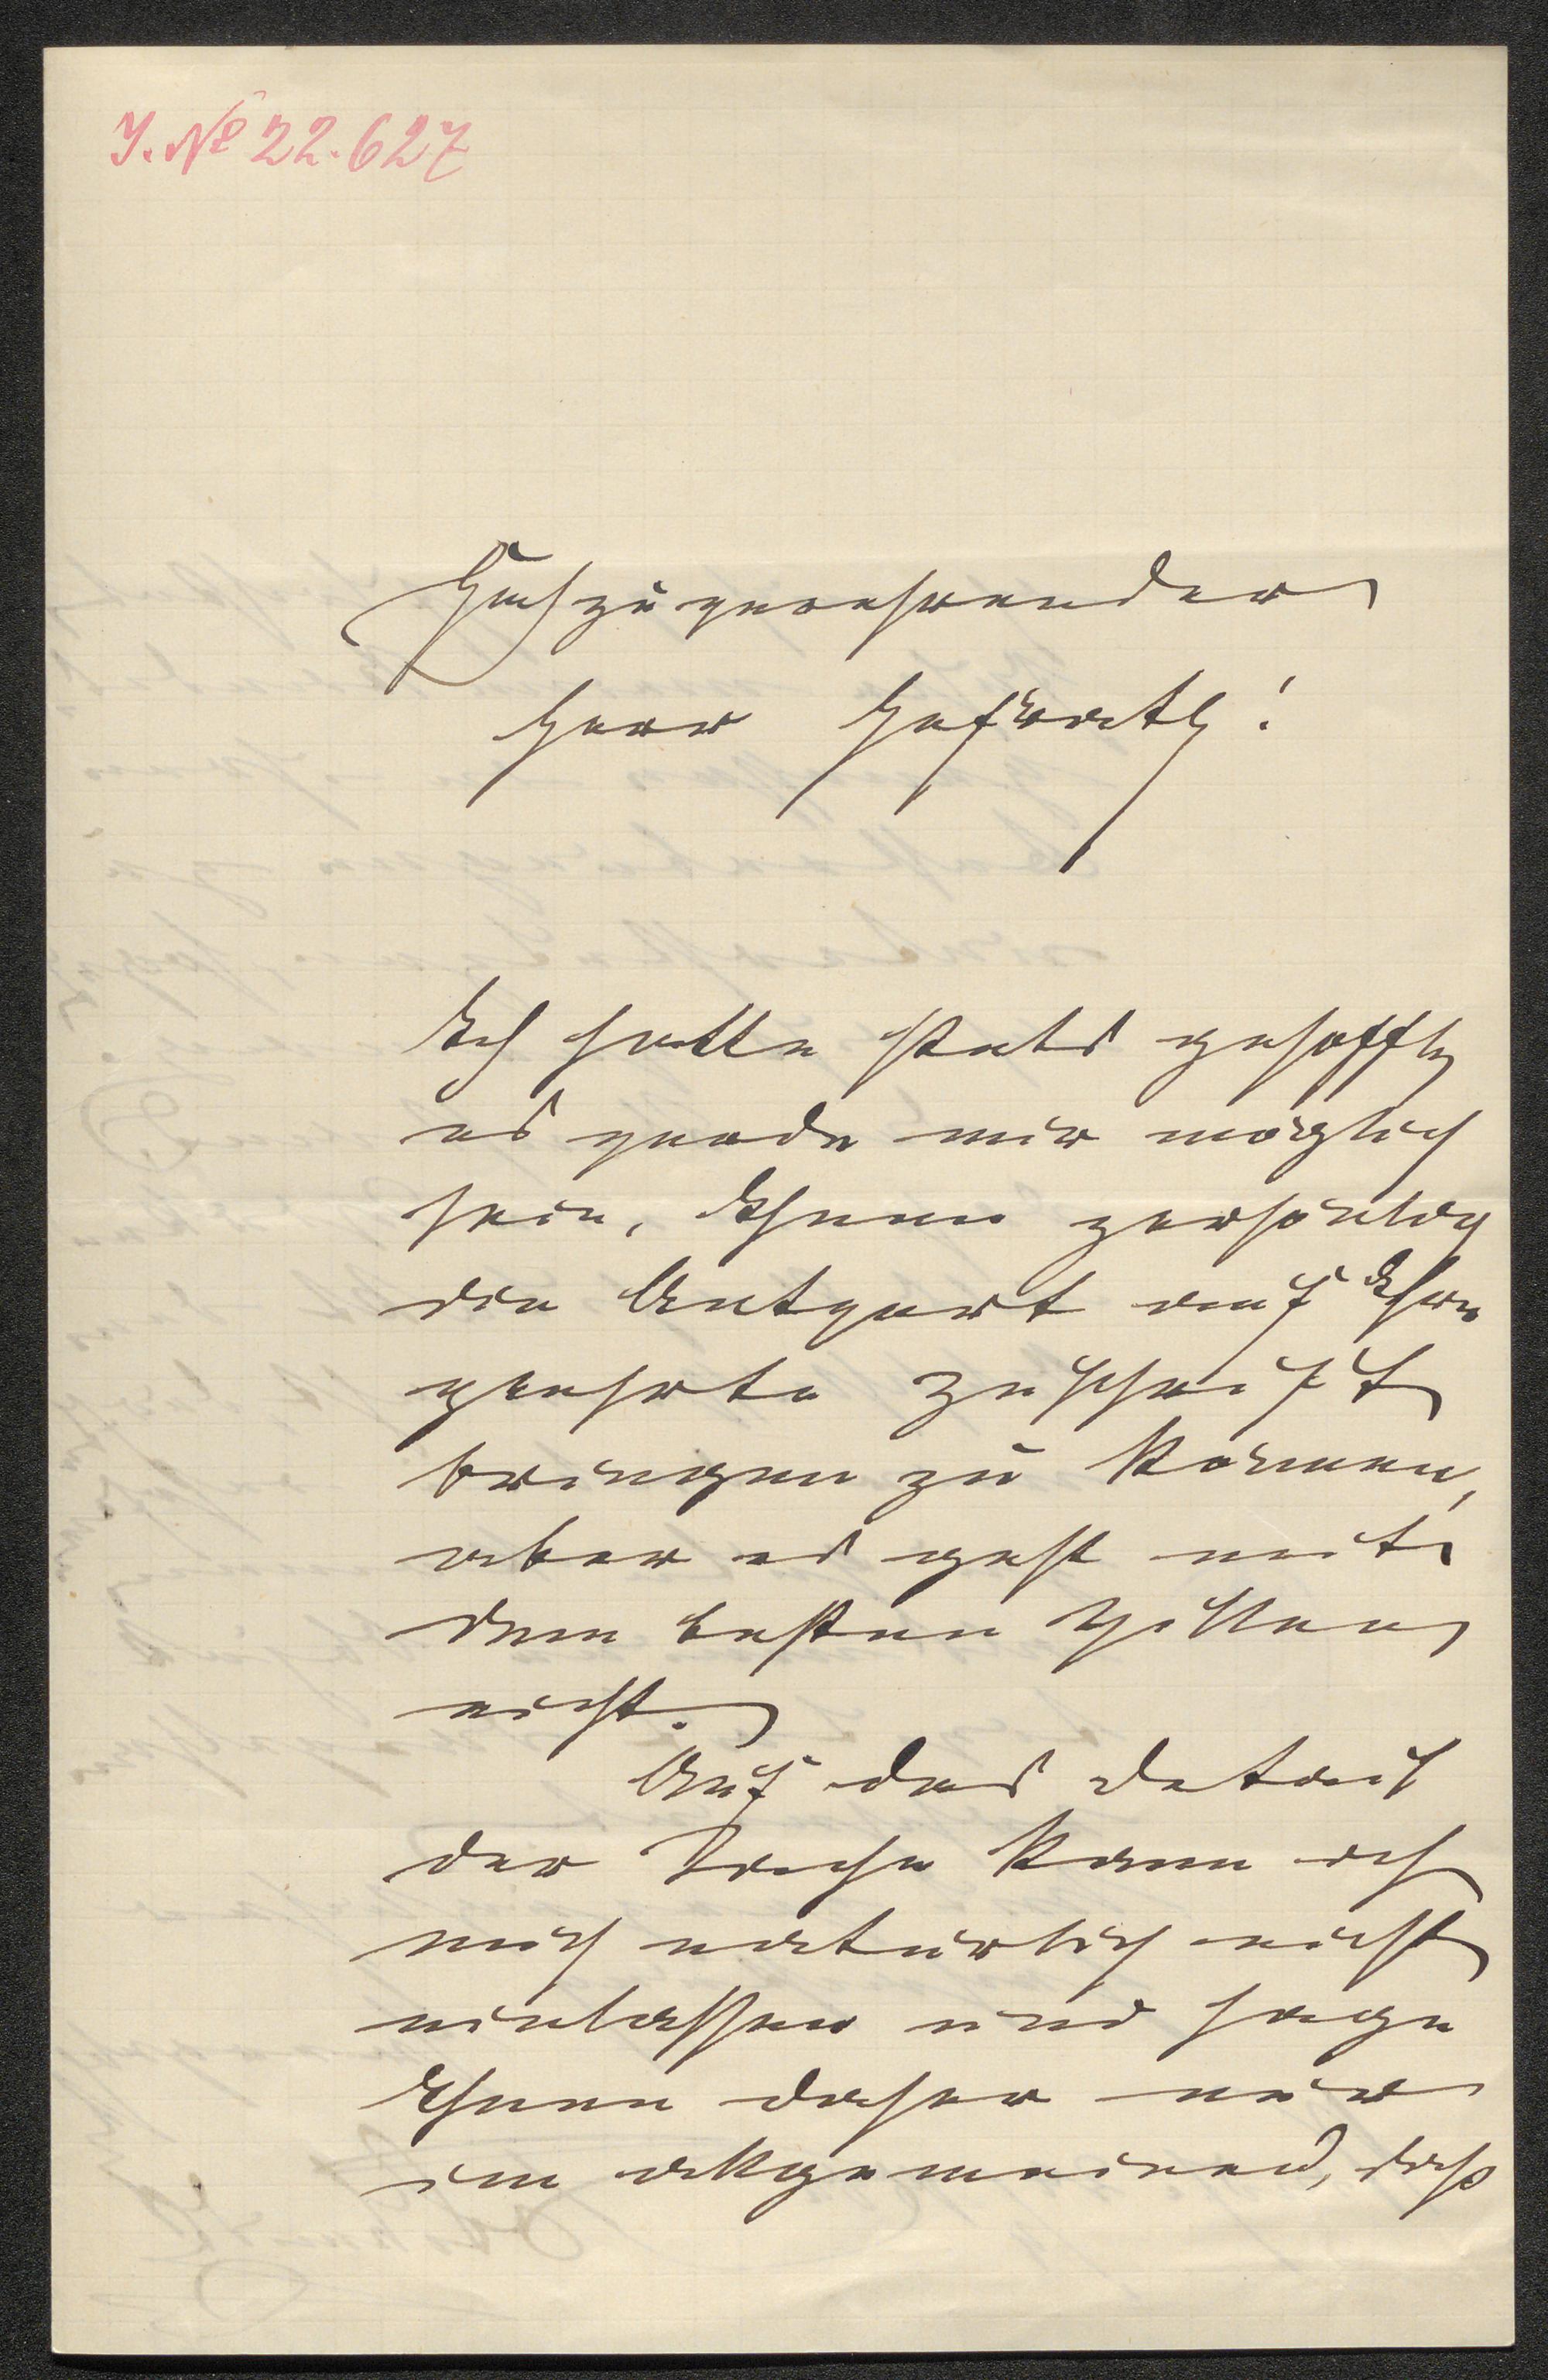 J. № 22.627
Hochzuverehrender
Herr Hofrath!
Ich hatte stets gehofft
es werde mir möglich
sein, Ihnen persönlich
die Antwort auf Ihre
geehrte Zuschrift
bringen zu können,
aber es geht mit
dem besten Willen
nicht.
Auf das Detail
der Sache kann ich
mich natürlich nicht
einlassen und sage
Ihnen daher nur
im allgemeinen, daß